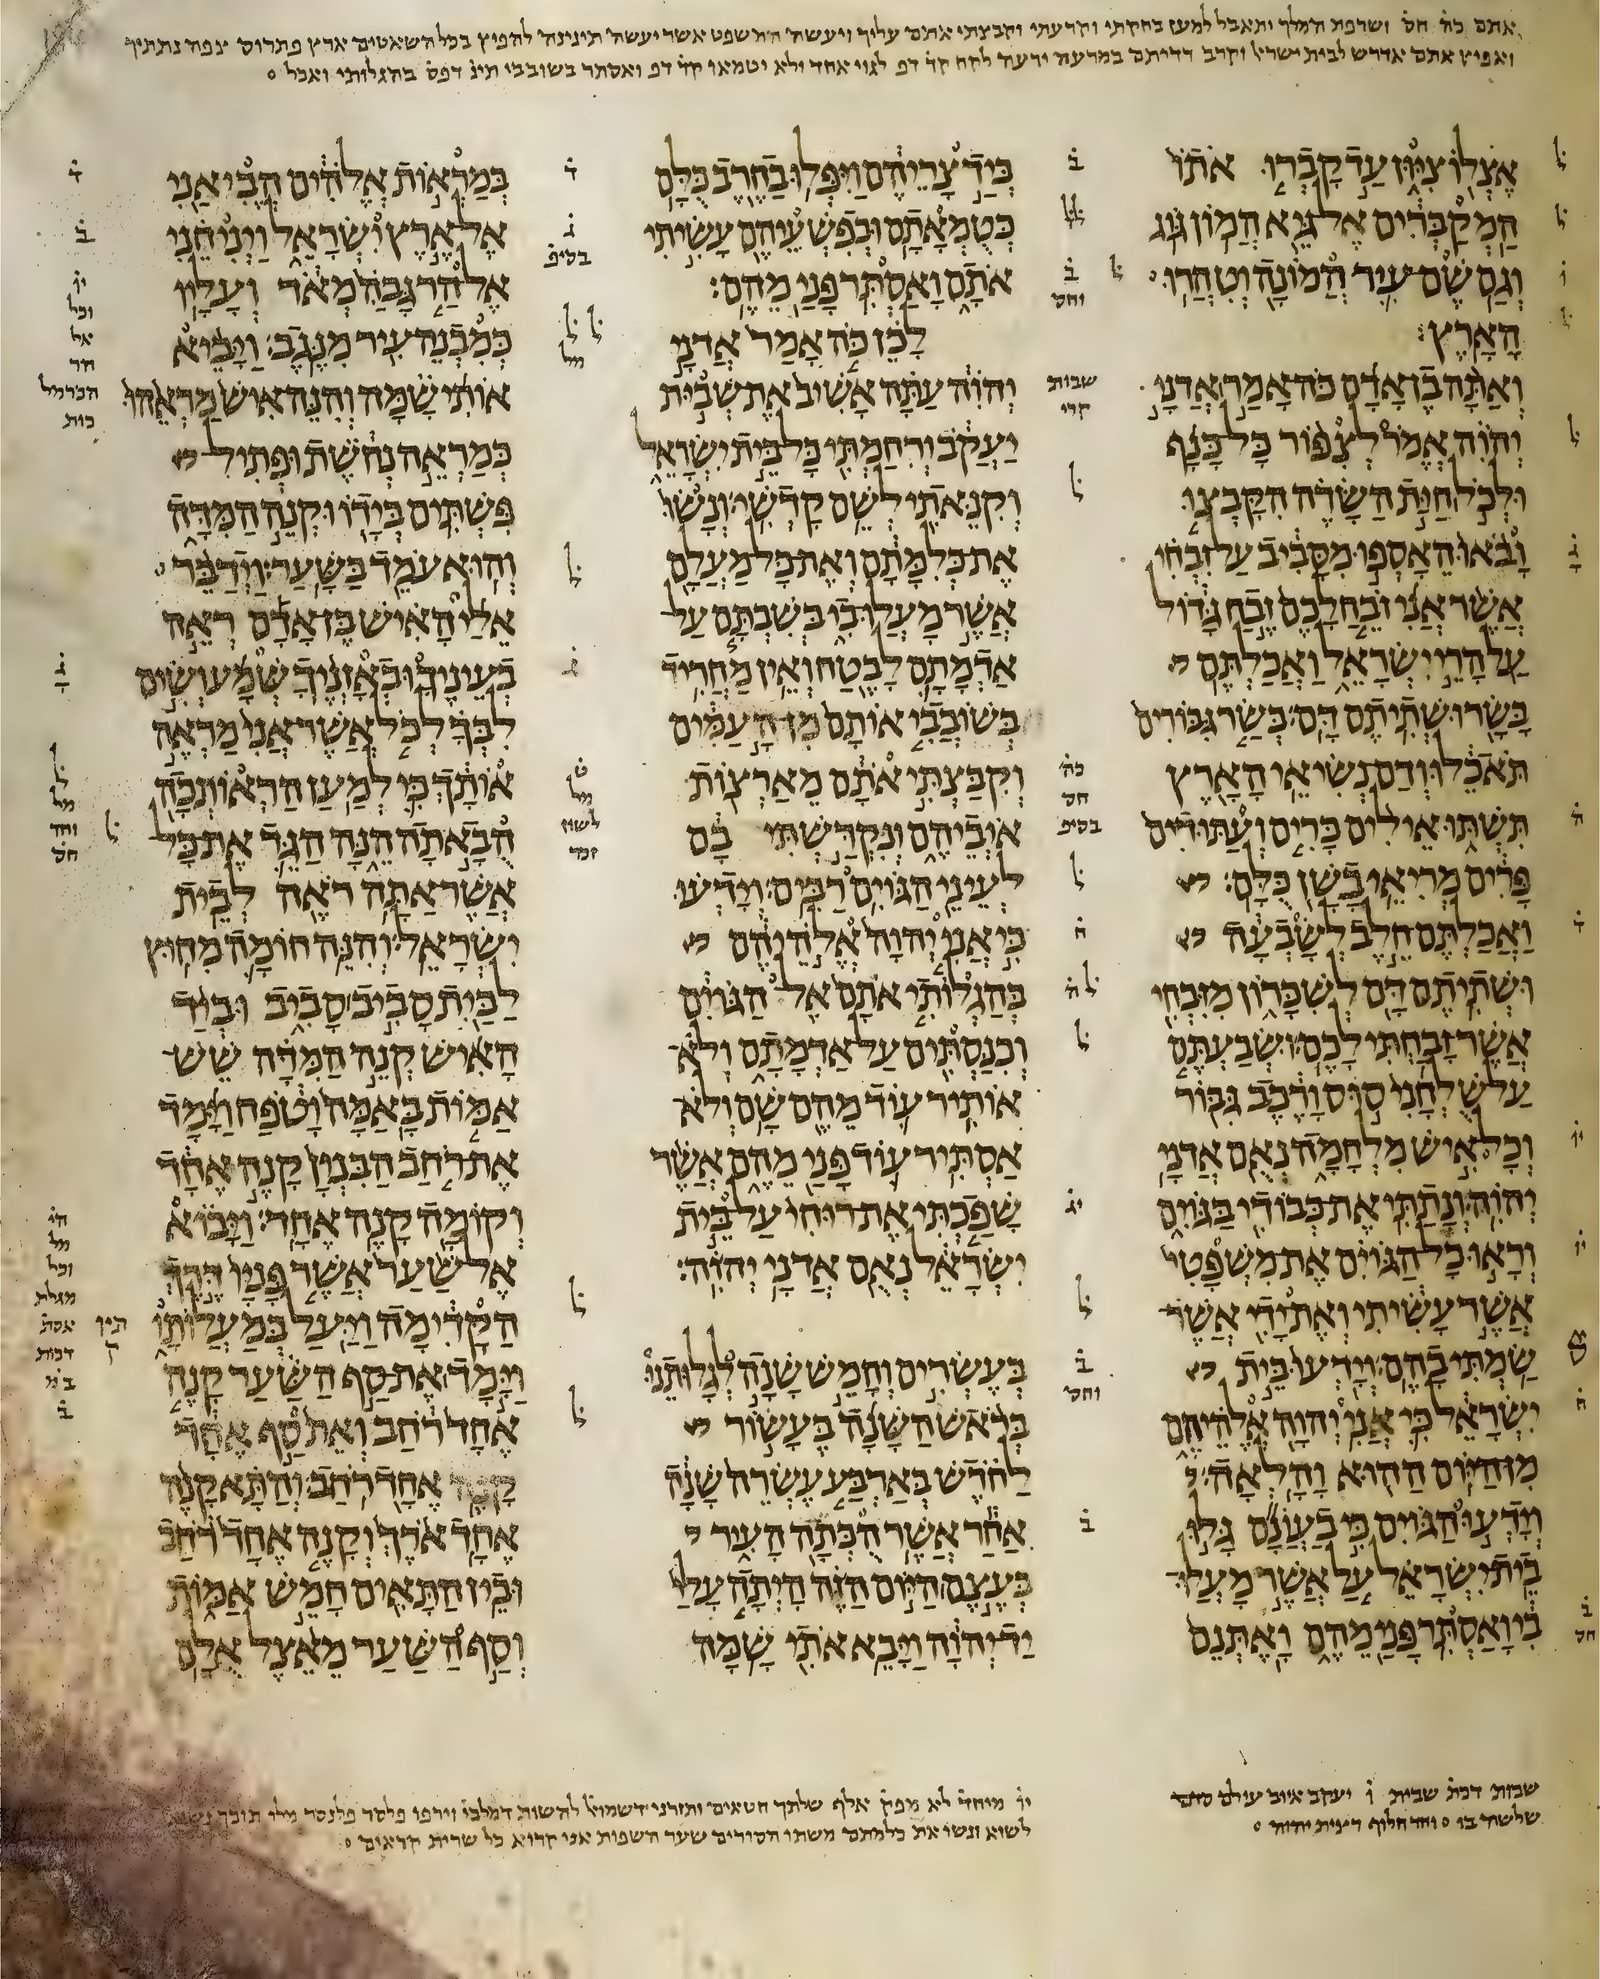 אתם כה חס ושרפת המלך ותאבל למען בחקתי וקבצתי אתם עליך ויעשה המשפט אשר יעשה תינינה להפיץ בכל השאטים ארץ פתרוס צפה נתתיך
ואפיץ אתם אדרש לבית ישראל וקרב במרעה ירעה לקח קד דפ לגוי אחד ולא יטמאו קד דפ ואסתר בשובבי תינ דפס בהגלותי ואכל
אצלו ציון עד קברו אתו
המקברים אל גיא המון גוג
וגם שם עיר המונה וטהרו
הארץ׃
ואתה בן אדם כה אמר אדני
יהוה אמר לצפור כל כנף
ולכל חית השדה הקבצו
ובאו האספו מסביב על זבחי
אשר אני זבח לכם זבח גדול
על הרי ישראל ואכלתם
בשר ושתיתם דם׃ בשר גבורים
תאכלו ודם נשיאי הארץ
תשתו אילים כרים ועתודים
פרים מריאי בשן כלם׃
ואכלתם חלב לשבעה
ושתיתם דם לשכרון מזבחי
אשר זבחתי לכם׃ ושבעתם
על שלחני סוס ורכב גבור
וכל איש מלחמה נאם אדני
יהוה׃ ונתתי את כבודי בגוים
וראו כל הגוים את משפטי
אשר עשיתי ואת ידי אשר
שמתי בהם׃ וידעו בית
ישראל כי אני יהוה אלהיהם
מן היום ההוא והלאה׃
וידעו הגוים כי בעונם גלו
בית ישראל על אשר מעלו
בי ואסתר פני מהם ואתנם
ביד צריהם ויפלו בחרב כלם
כטמאתם וכפשעיהם עשיתי
אתם ואסתר פני מהם׃
לכן כה אמר אדני
יהוה עתה אשיב את שבית
יעקב ורחמתי כל בית ישראל
וקנאתי לשם קדשי׃ ונשו
את כלמתם ואת כל מעלם
אשר מעלו בי בשבתם על
אדמתם לבטח ואין מחריד
בשובבי אותם מן העמים
וקבצתי אתם מארצות
אויביהם ונקדשתי בם
לעיני הגוים רבים׃ וידעו
כי אני יהוה אלהיהם
בהגלותי אתם אל הגוים
וכנסתים על אדמתם ולא
אותיר עוד מהם שם׃ ולא
אסתיר עוד פני מהם אשר
שפכתי את רוחי על בית
ישראל נאם אדני יהוה׃
בעשרים וחמש שנה לגלותנו
בראש השנה בעשור
לחדש בארבע עשרה שנה
אחר אשר הכתה העיר
בעצם היום הזה היתה עלי
יד יהוה ויבא אתי שמה׃
במראות אלהים הביאני
אל ארץ ישראל ויניחני
אל הר גבה מאד ועליו
כמבנה עיר מנגב׃ ויביא
אותי שמה והנה איש מראהו
כמראה נחשת ופתיל
פשתים בידו וקנה המדה
והוא עמד בשער׃ וידבר
אלי האיש בן אדם ראה
בעיניך ובאזניך שמע ושים
לבך לכל אשר אני מראה
אותך כי למען הראותכה
הבאתה הנה הגד את כל
אשר אתה ראה לבית
ישראל׃ והנה חומה מחוץ
לבית סביב סביב וביד
האיש קנה המדה שש
אמות באמה וטפח וימד
את רחב הבנין קנה אחד
וקומה קנה אחד׃ ויבוא
אל שער אשר פניו דרך
הקדימה ויעל במעלותו
וימד את סף השער קנה
אחד רחב ואת סף אחד
קנה אחד רחב׃ והתא קנה
אחד ארך וקנה אחד רחב
ובין התאים חמש אמות
וסף השער מאצל אולם
שבות
קרי
בסיפ
וחס
כה
חס
בסיפ
וחס
וכל
מגלת
הכרמל
שבות דכת שבית ו יעקב איוב עילם סדם
יו מיחד לא מפק אלף שלתך חטאים ותזרני דשמואל להשות דמלכי וירפו פלסר
לשוא ונשו את כלמתם משתו הסורים שער השפות אני קרוא כל שרית קראים